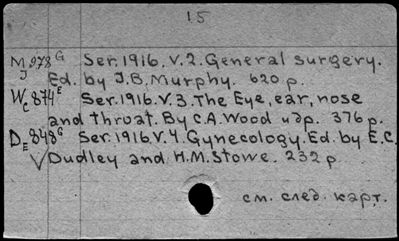 15
M 978 G Ser. 1916. V. 2. General surgery.
J Ed. by J.B. Murphy. 620 p.
W 874 E Ser. 1916. V. 3. The Eye, ear, nose
C and throat. By C.A. Wood и др. 376 p.
D 848 G Ser. 1916. V. 4. Gynecology. Ed. by E.C.
E Dudley and H.M. Stowe. 232 p.
см. след. карт.